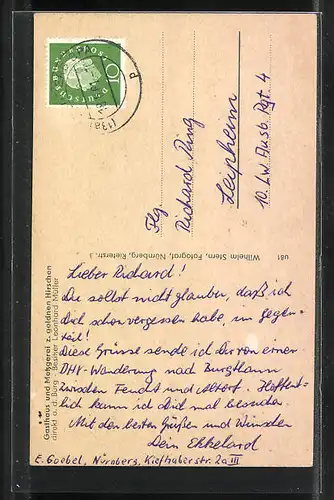 Lieber Richard!
Du sollst nicht glauben, daß ich
dich schon vergessen habe, im gegen-
teil!
Diese Grüsse sende ich Dir von einer
DHV-Wanderung nach Burgthann
zwischen Feucht und Altdorf. Hoffent-
lich kann ich Dich mal besuchen.
Mit den besten Grüßen und Wünschen
Dein Ekkehard
E. Goebel, Nürnberg, Kiefhaberstr. 2a III
Flg.
Richard Ring
Leipheim
10. LW. Ausb. Rgt. 4
Gasthaus und Metzgerei z. goldnen Hirschen
direkt a. d. Burg - Besitzer Leonhard Müller
u81 Wilhelm Stern, Fotograf, Nürnberg, Kieferstr. 3
DEUTSCHE
BUNDESPOST
10
(13a)
d